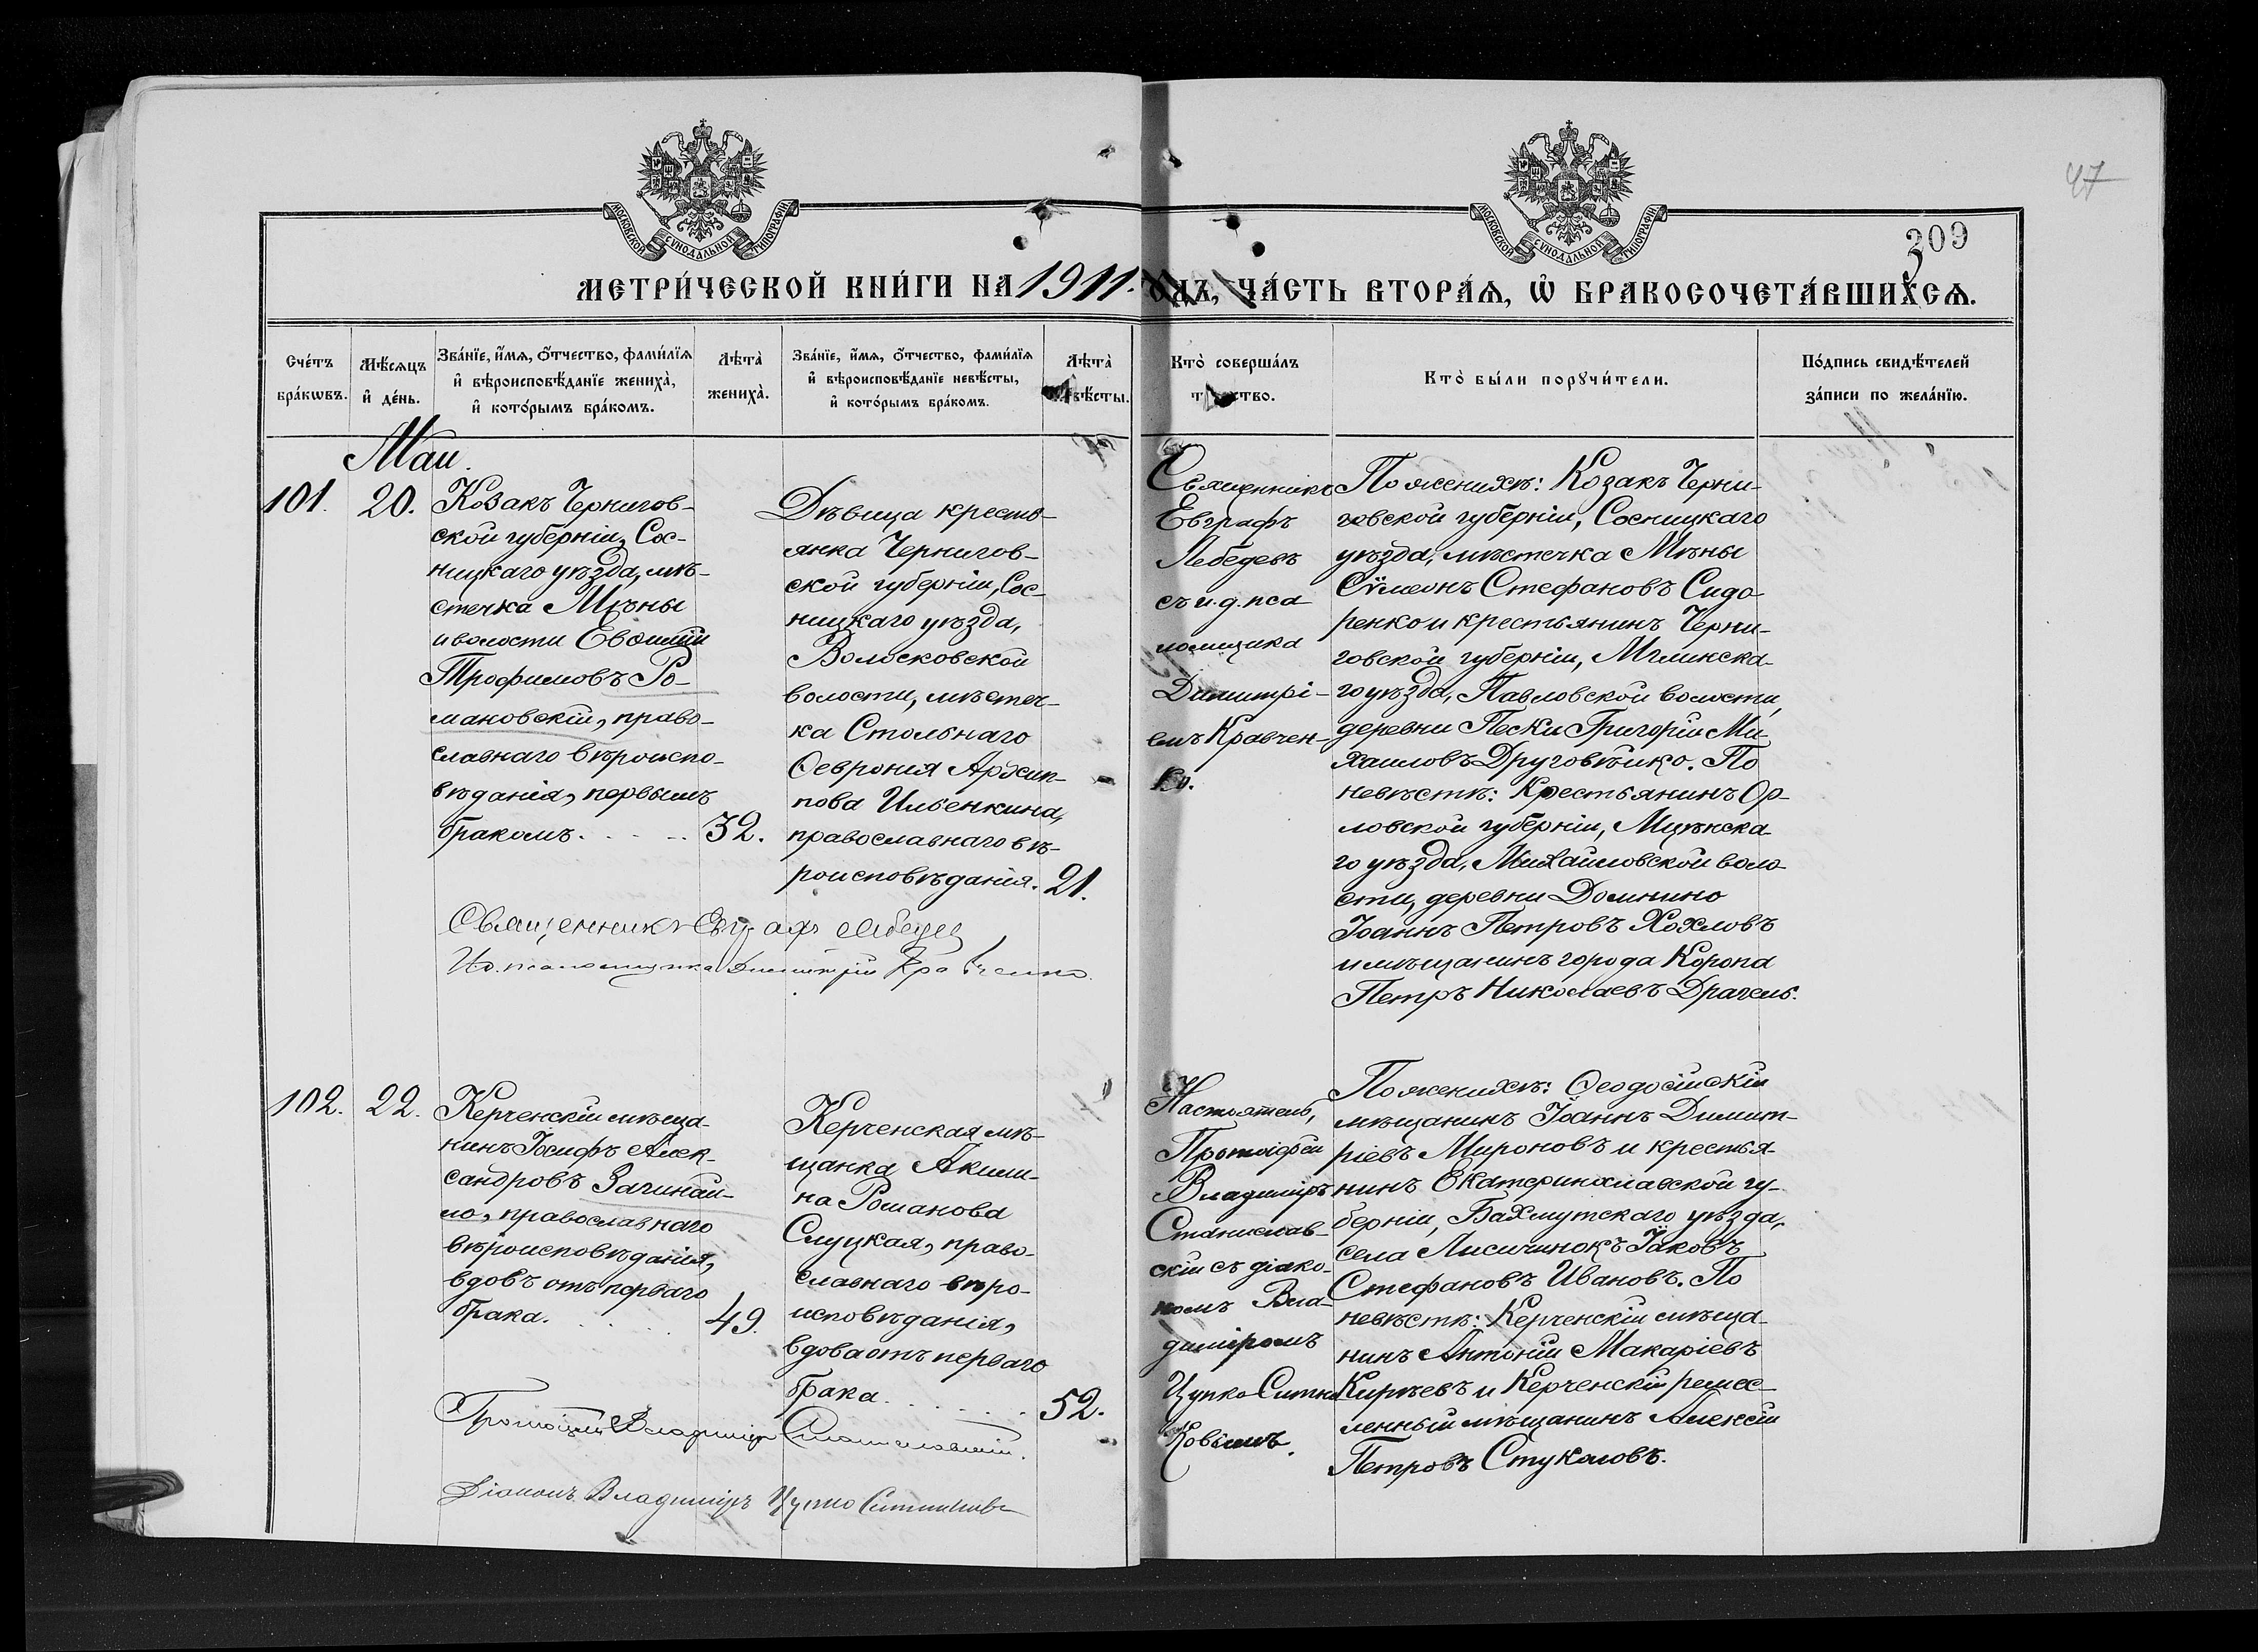 47
309
МОСКОВСКОЙ СѴНОДАЛЬНОЙ ТИПОГРАФІИ
МОСКОВСКОЙ СѴНОДАЛЬНОЙ ТИПОГРАФІИ
МЕТРИ́ЧЕСКОЙ КНИ́ГИ НА 1911. ОДЪ, ЧА́СТЬ ВТОРА́Ѧ, Ѡ҆ БРАКОСОЧЕТА́ВШИХСѦ.
Сче́тъ
бра́кѡвъ.
Мѣ́сѧцъ
и҆ де́нь.
Зва́нїе, и҆́мѧ, ѻ҆́тчество, фами́лїѧ
и҆ вѣроисповѣ́данїе жениха̀,
и҆ кото́рымъ бра́комъ.
Лѣта̀
жениха̀.
Зва́нїе, и҆́мѧ, ѻ҆́тчество, фами́лїѧ
и҆ вѣроисповѣ́данїе невѣ́сты,
и҆ кото́рымъ бра́комъ.
Лѣта̀
вѣ́сты.
Кто̀ соверша́лъ
т ство.
Кто̀ бы́ли порꙋчи́тели.
По́дпись свидѣ́телей
за́писи по жела́нїю.
Маи.
101.
20.
Козакъ Чернигов-
ской губерніи, Сос-
ницкаго уѣзда, мѣ-
стечка Мѣны
и волости Евѳимій
Трофимовъ Ро-
мановскій, право-
славнаго вѣроиспо-
вѣданія, первымъ
бракомъ.
32.
Дѣвица кресть-
янка Чернигов-
ской губерніи, Сос-
ницкаго уѣзда,
Волосковской
волости, мѣстеч-
ка Стольнаго
Ѳеврониѧ Архип-
пова Ильенкина,
православнаго вѣ-
роисповѣданія.
21.
Священникъ
Евграфъ
Лебедевъ
съ и.д. пса
ломщика
Димитрі-
емъ Кравчен-
ко.
По женихѣ: Козакъ Черни-
говской губерніи, Сосницкаго
уѣзда, мѣстечка Мѣны
Сѵмеонъ Стефановъ Сидо
ренко и крестьянинъ Черни-
говской губерніи, Мглинска-
го уѣзда, Павловской волости,
деревни Пески Григорій Ми-
хаиловъ Друговѣйко. По
невѣстѣ: Крестьянинъ Ор-
ловской губерніи, Мценска
го уѣзда, Михайловской воло
сти, деревни Долинино
Іоаннъ Петровъ Хохловъ
и мѣщанинъ города Коропа
Петръ Николаевъ Драчель.
Священникъ Евграфъ Лебедев
Ио. псаломщика Димитрій Кравченко.
102.
22.
Керченскій мѣща-
нинъ Іосифъ Алек-
сандровъ Зачинай-
ло, православнаго
вѣроисповѣданія,
вдовъ отъ перваго
брака.
49.
Керченская мѣ-
щанка Акили-
на Романова
Слуцкая, право-
славнаго вѣро-
исповѣданія,
вдова отъ перваго
брака.
52.
Настоятель,
Протоіерей
Владиміръ
Станислав-
скій съ діако-
номъ Вла-
диміромъ
Цупко Ситни
ковымъ.
По женихѣ: Ѳеодосійскій
мѣщанинъ Іоаннъ Димит-
ріевъ Мироновъ и крестья-
нинъ Екатеринославской гу-
берніи, Бахмутскаго уѣзда,
села Лисичинокъ Іаковъ
Стефановъ Ивановъ. По
невѣстѣ: Керченскій мѣща-
нинъ Антоній Макаріевъ
Кирѣевъ и Керченскій ремес-
ленный мѣщанинъ Алексій
Петровъ Стукаловъ.
Протоіерей Владиміръ Станиславскій.
Діаконъ Владиміръ Цупко Ситников